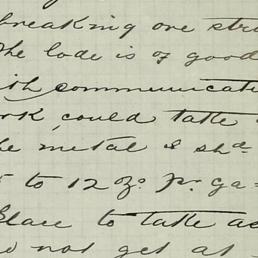 breaking ore
the lode is of good
communicati
could take
metal & shd
to 12 oz. pr. ga
place to take as
not get at